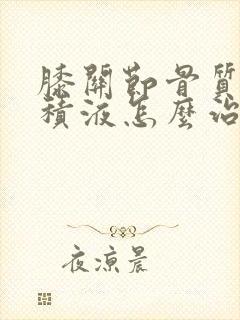 膝關節骨質
積液怎麼治
夜涼晨